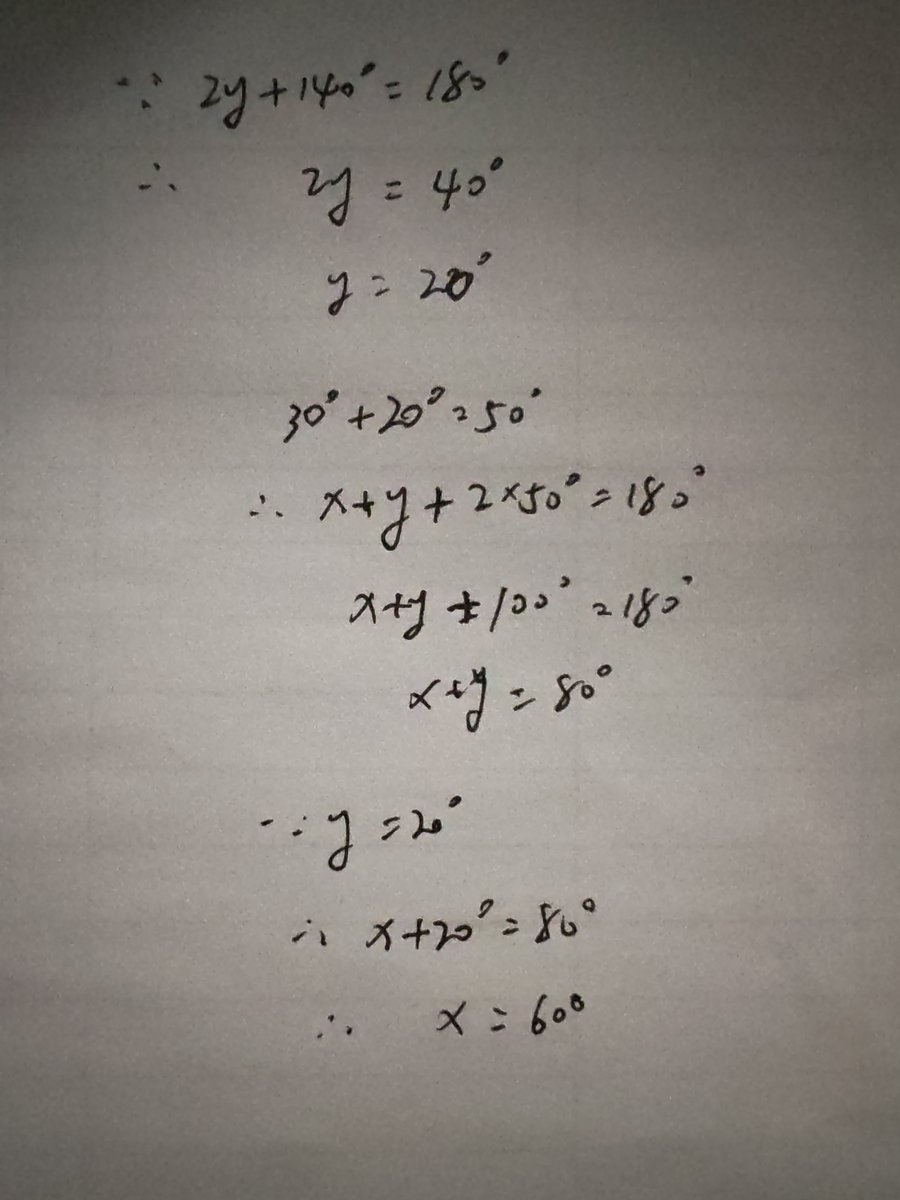 ∵ 2y+140°=180°
∴ 2y = 40°
y = 20°
30°+20°=50°
∴ x+y+2×50°=180°
x+y+100°=180°
x+y=80°
∵ y=20°
∴ x+20°=80°
∴ x=60°